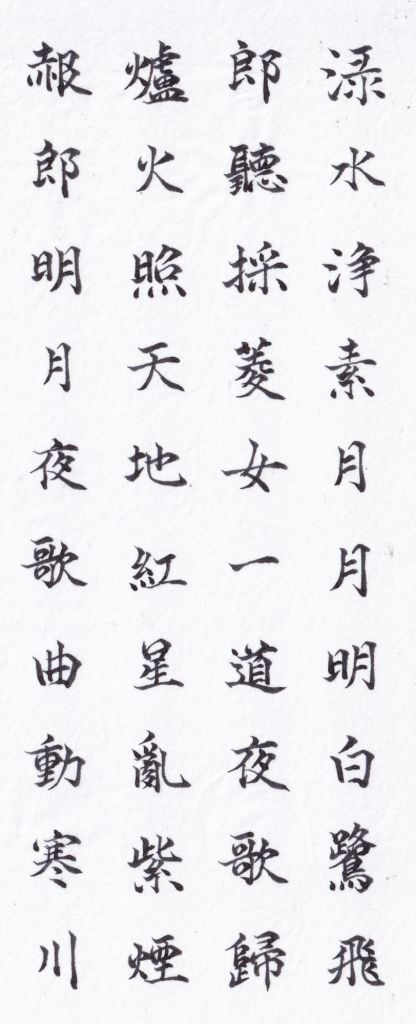 渌水浄素月月明白鷺飛
郎聽採菱女一道夜歌歸
爐火照天地紅星亂紫煙
赧郎明月夜歌曲動寒川